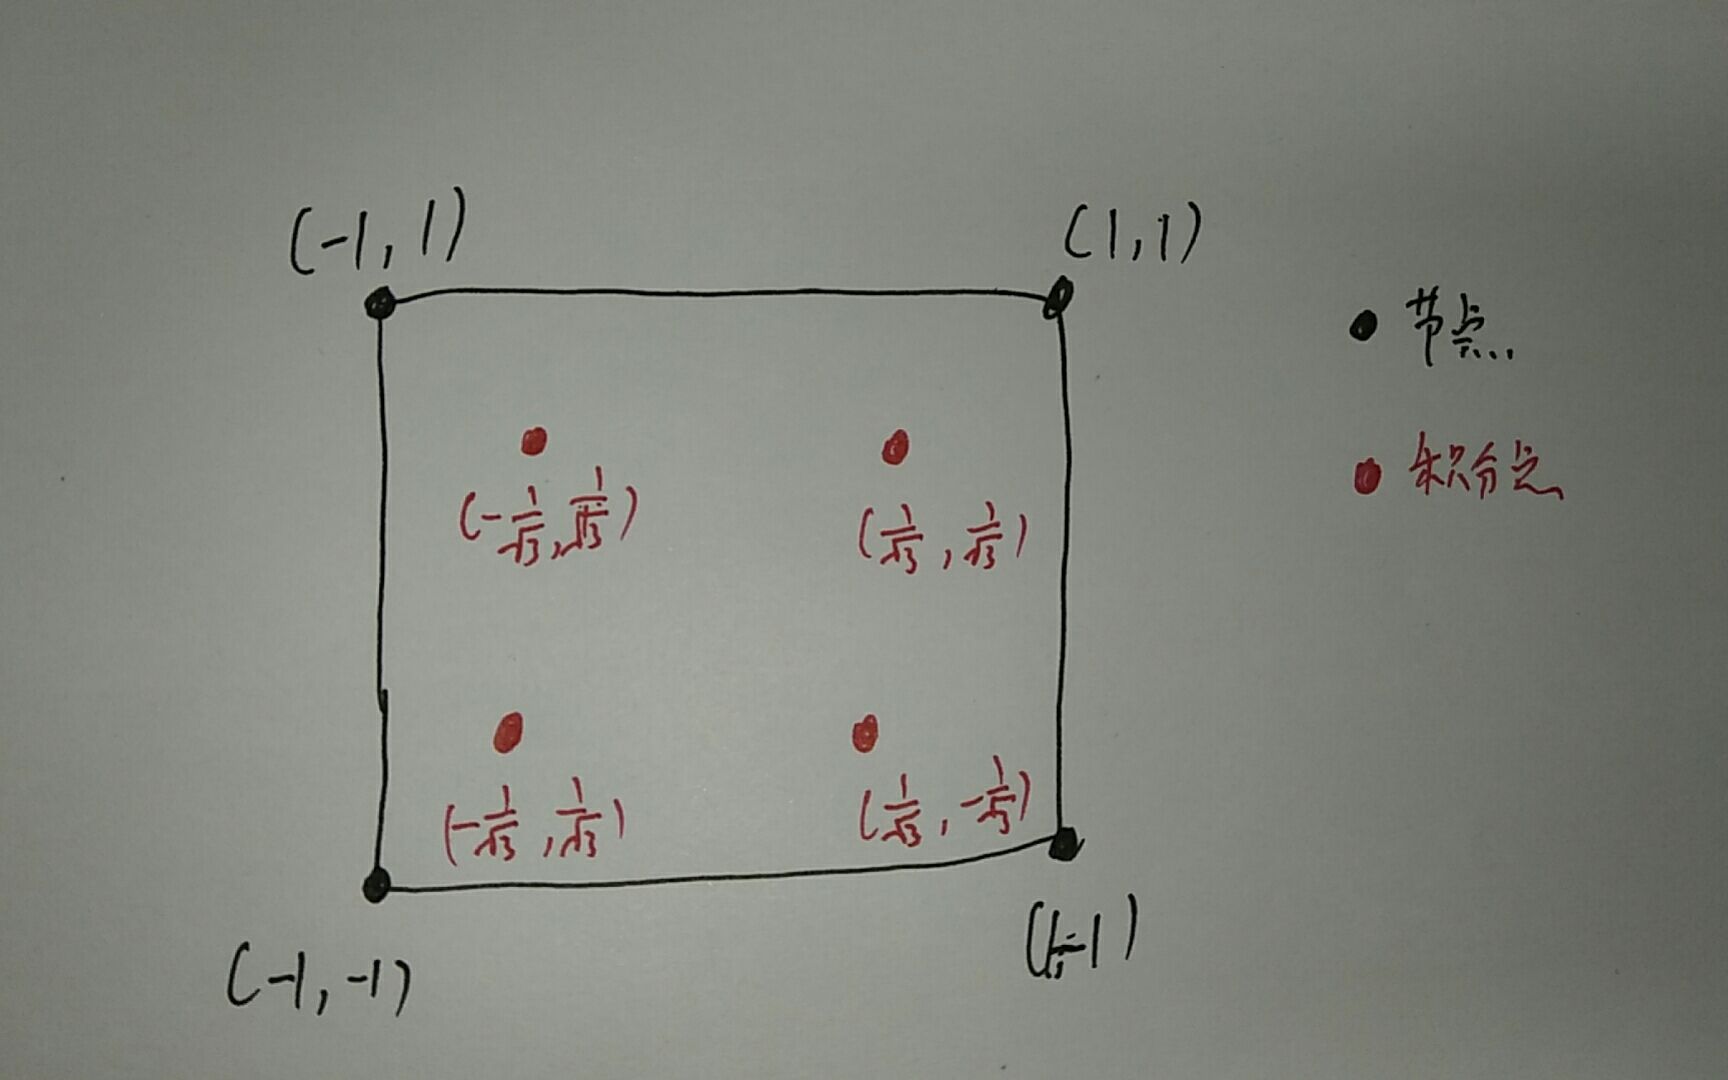 (-1, 1)
(1, 1)
节点
积分点
(-1/√3, 1/√3)
(1/√3, 1/√3)
(-1/√3, 1/√3)
(1/√3, -1/√3)
(-1, -1)
(1, -1)